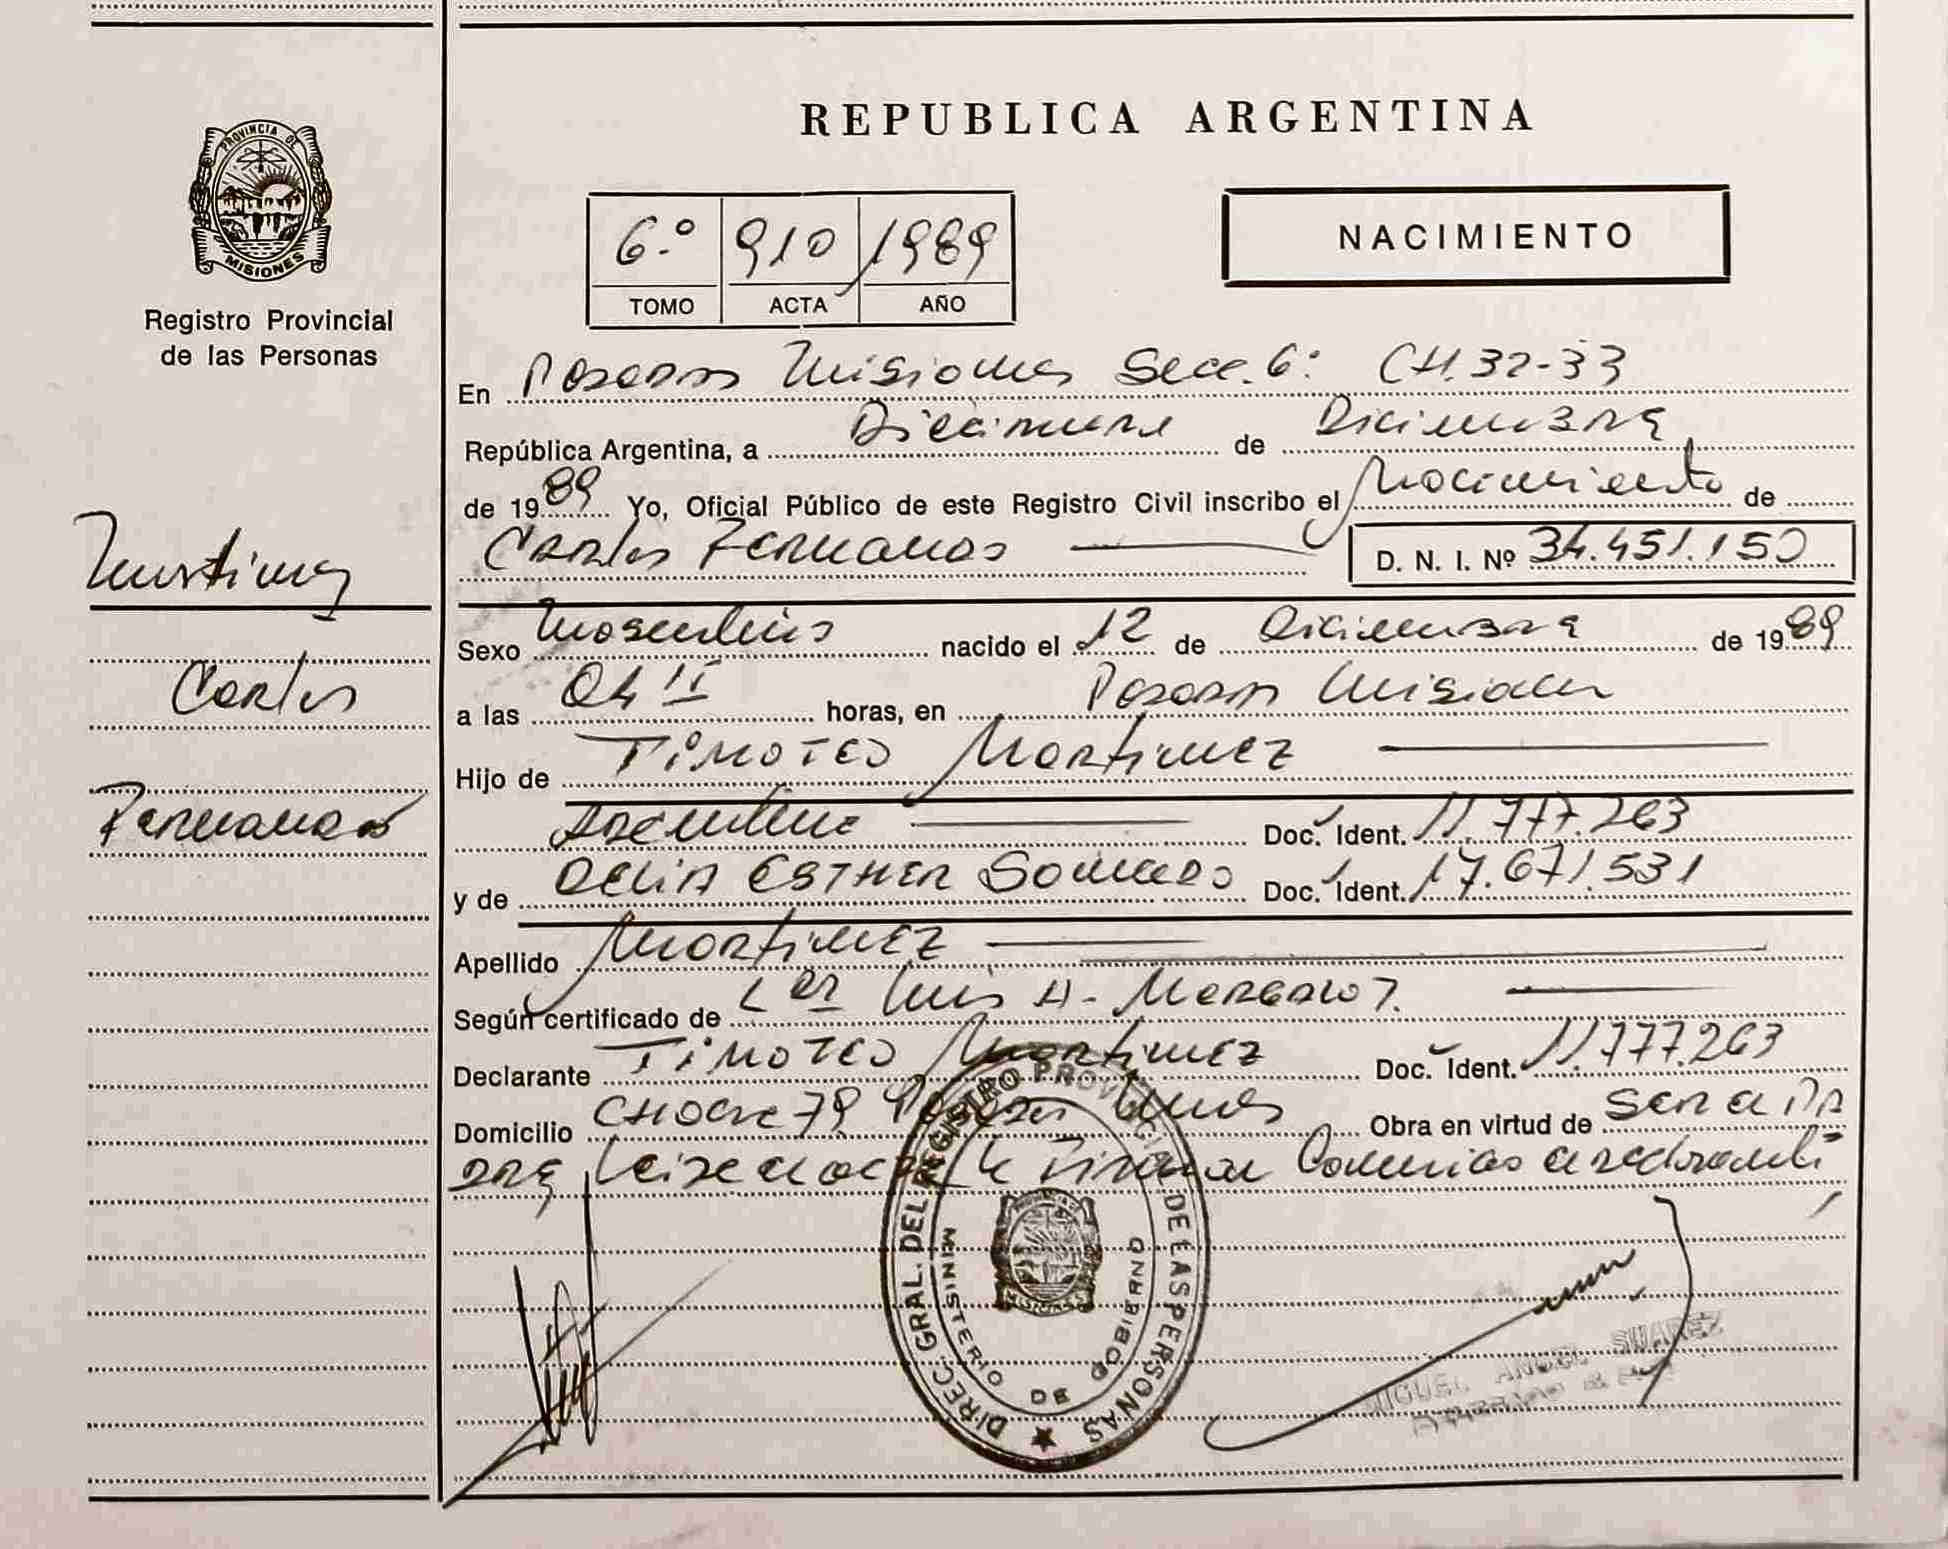 PROVINCIA DE
MISIONES
Registro Provincial
de las Personas
Martinez
Carlos
Fernando
REPUBLICA ARGENTINA
6.º 910 1989
TOMO ACTA AÑO
NACIMIENTO
En Posadas Misiones Secc. 6º CH. 32-33
República Argentina, a Diecinueve de Diciembre
de 1989 Yo, Oficial Público de este Registro Civil inscribo el Nacimiento de
Carlos Fernando
D. N. I. Nº 34.451.150
Sexo Masculino nacido el 12 de Diciembre de 1989
a las 04 horas, en Posadas Misiones
Hijo de TIMOTEO Martinez
Argentino Doc. Ident. 11.777.263
y de DELIA ESTHER Doc. Ident. 17.671.531
Apellido Martinez
Según certificado de Luis A.
Declarante TIMOTEO Martinez Doc. Ident. 11.777.263
Domicilio 79 Posadas Obra en virtud de
Firman
DIREC. GRAL. DEL REGISTRO PROVINCIAL DE LAS PERSONAS
MINISTERIO DE GOBIERNO
MIGUEL ANGEL SUAREZ